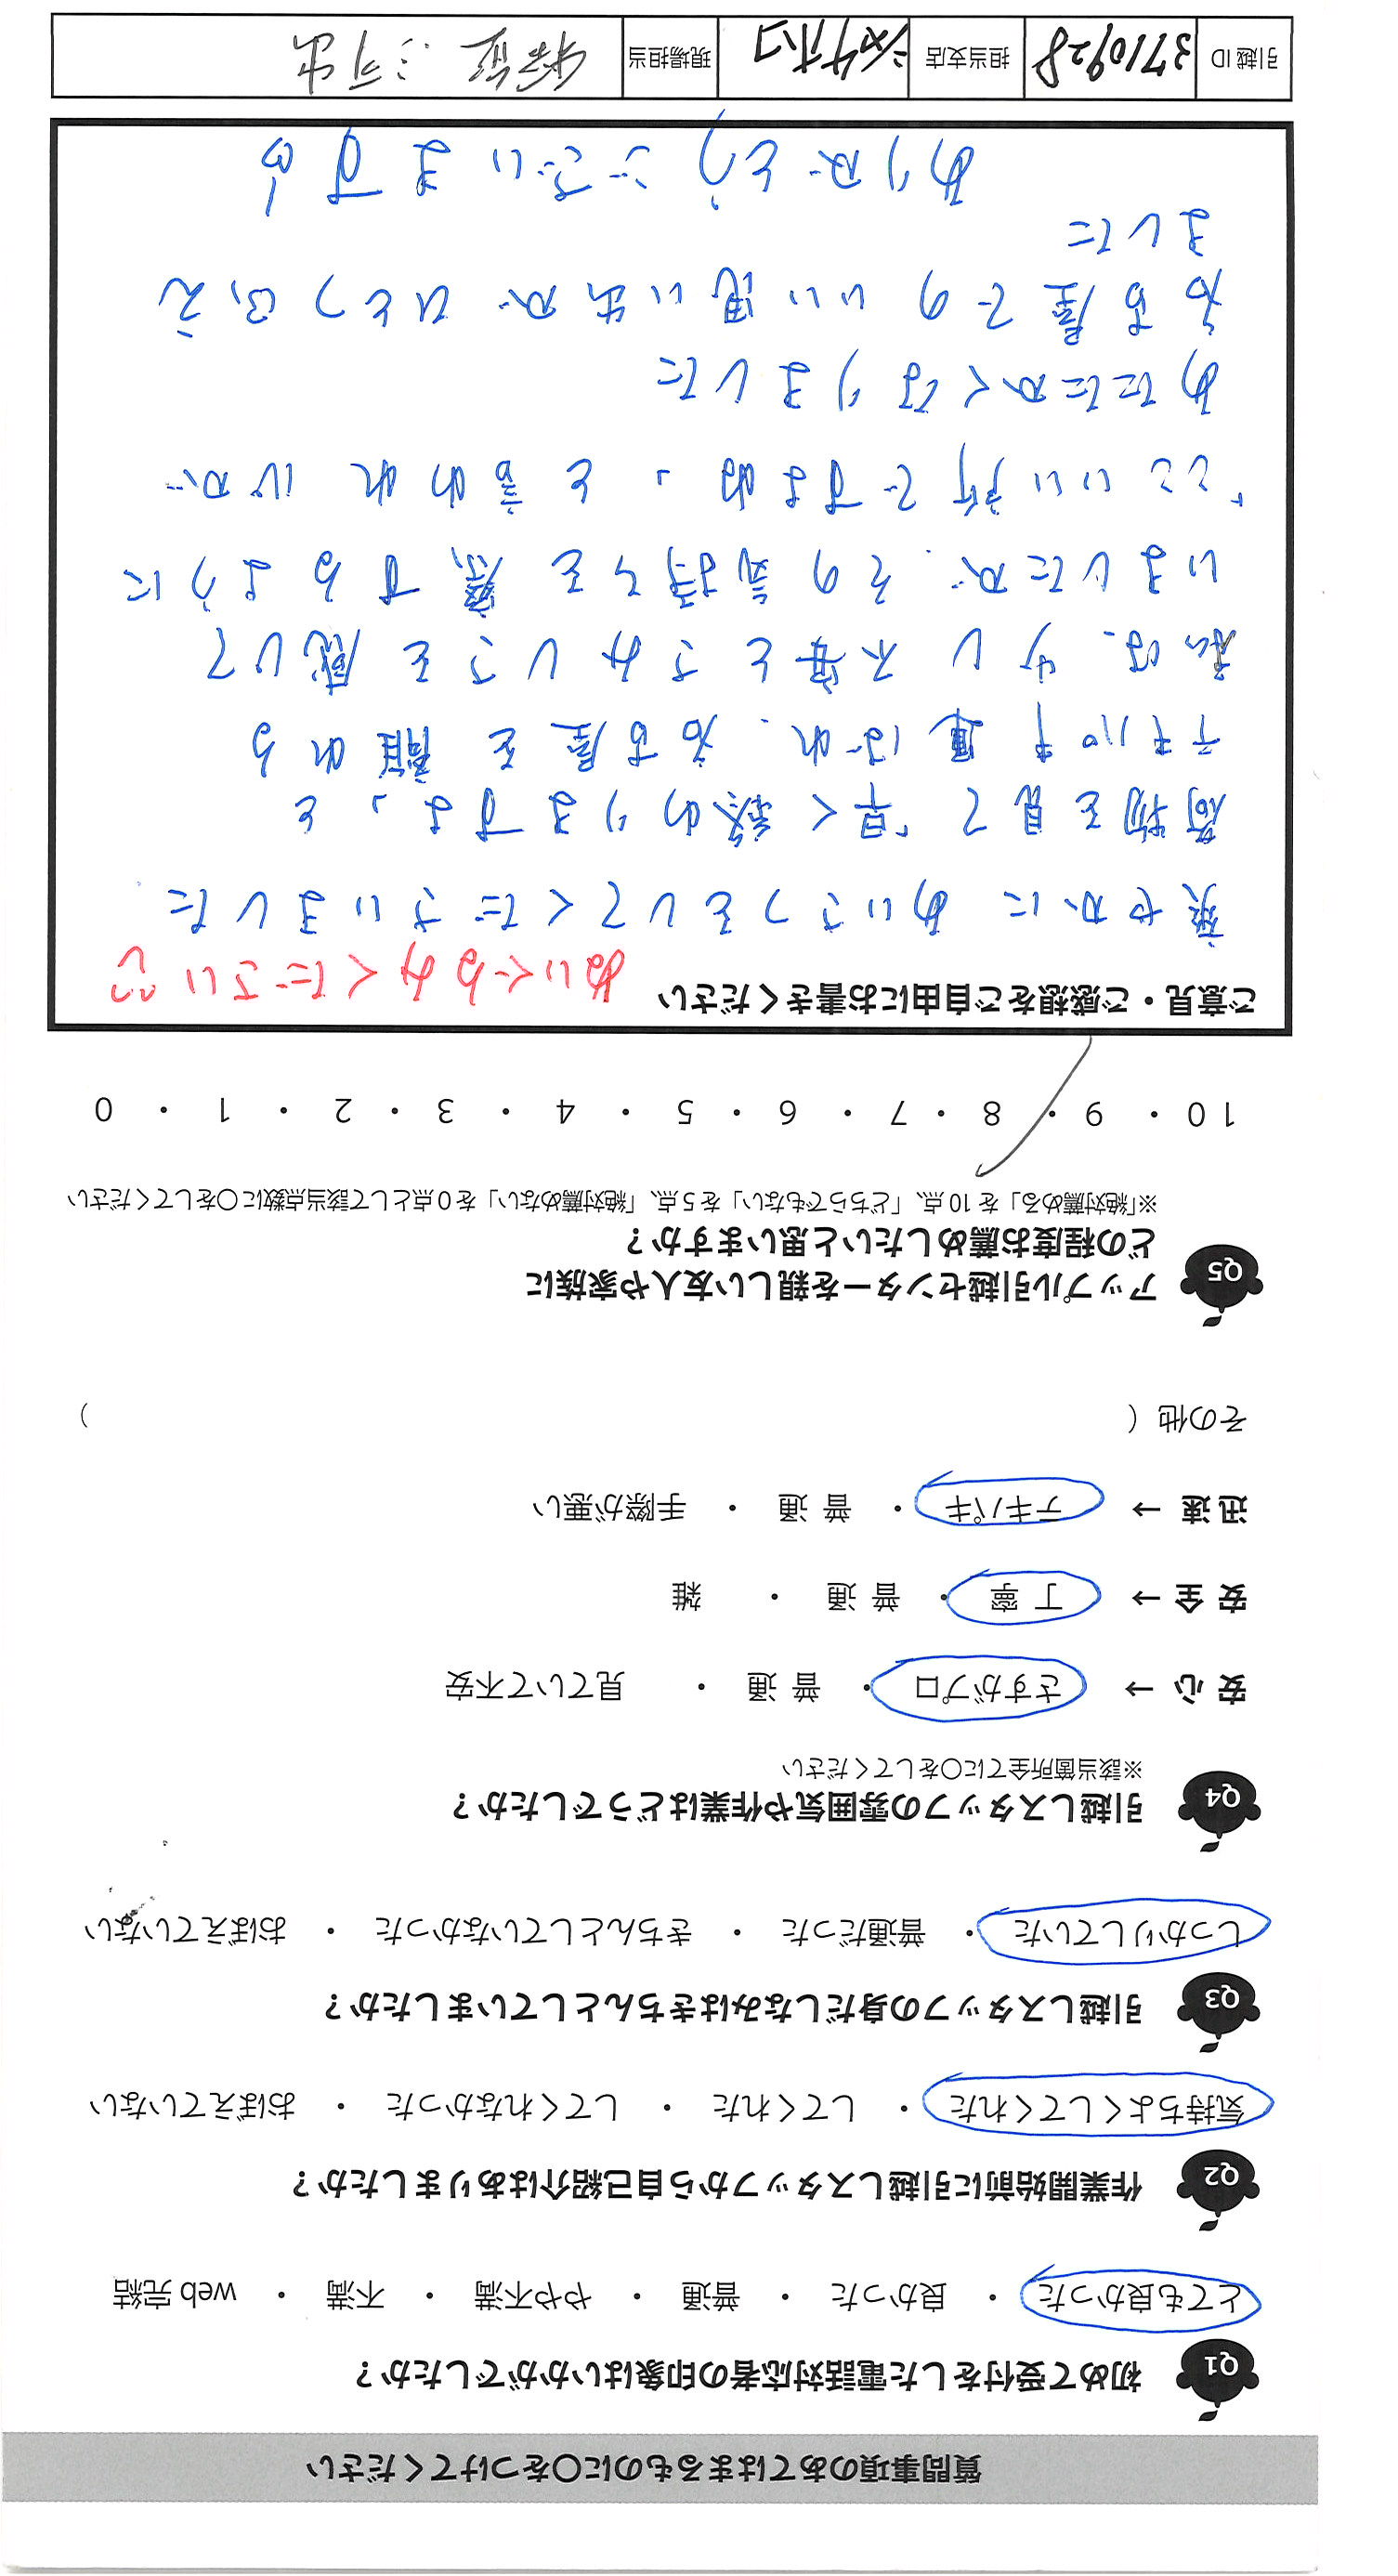 質問事項のあてはまるものに○をつけてください
Q1 初めて受付をした電話対応者の印象はいかがでしたか？
とても良かった ・ 良かった ・ 普通 ・ やや不満 ・ 不満 ・ web 完結
Q2 作業開始前に引越しスタッフから自己紹介はありましたか？
気持ちよくしてくれた ・ してくれた ・ してくれなかった ・ おぼえていない
Q3 引越しスタッフの身だしなみはきちんとしていましたか？
しっかりしていた ・ 普通だった ・ きちんとしていなかった ・ おぼえていない
Q4 引越しスタッフの雰囲気や作業はどうでしたか？
※該当箇所全てに○をしてください
安 心 → さすがプロ ・ 普 通 ・ 見ていて不安
安 全 → 丁 寧 ・ 普 通 ・ 雑
迅 速 → テキパキ ・ 普 通 ・ 手際が悪い
その他（ ）
Q5 アップル引越センターを親しい友人や家族に
どの程度お薦めしたいと思いますか？
※「絶対薦める」を 10 点、「どちらでもない」を 5 点、「絶対薦めない」を 0 点として該当点数に○をしてください
10 ・ 9 ・ 8 ・ 7 ・ 6 ・ 5 ・ 4 ・ 3 ・ 2 ・ 1 ・ 0
ご意見・ご感想をご自由にお書きください
爽やかに あいさつをしてくださいました
荷物を見て「早く終わりますよ」と
テキパキ運ばれ、お部屋を離れる
私は、少し不安とさみしさを感じて
いましたが、その気持ちを察するように
「ここいい所ですよね」と言われ 心が
あたたかくなりました
お部屋でのいい思い出が ひとつふえ
ました
ありがとうございます!
引越 ID 3710928 担当支店 現場担当